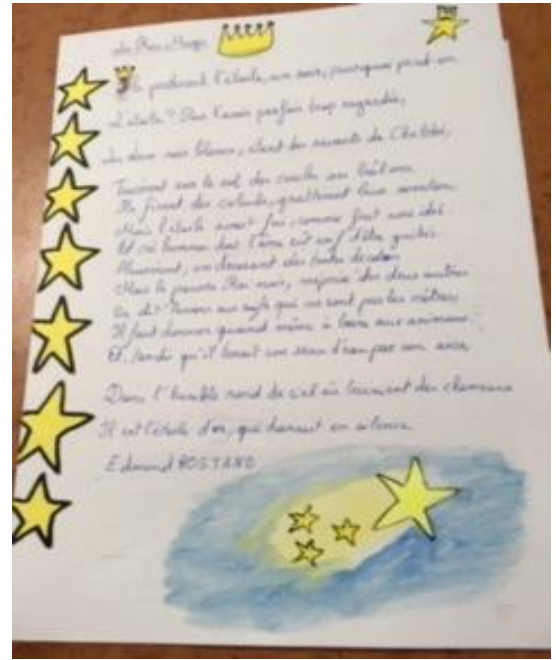 Les Rois Mages
Ils perdirent l'étoile, un soir, pourquoi perd-on
L'étoile ? Pour l'avoir parfois trop regardée,
Les deux rois blancs, étant des savants de Chaldée,
Tracèrent sur le sol des cercles au bâton.
Ils firent des calculs, grattèrent leur menton
Mais l'étoile avait fui, comme fuit une idée
Et ces hommes dont l'âme eût soif d'être guidée
Pleurèrent, en dressant des tentes de coton
Mais le pauvre Roi noir, méprisé des deux autres
Se dit "Pensons aux soifs qui ne sont pas les nôtres
Il faut donner quand même à boire aux animaux."
Et, tandis qu'il tenait son seau d'eau par son anse,
Dans l'humble rond de ciel où buvaient des chameaux
Il vit l'étoile d'or, qui dansait en silence
Edmond ROSTAND